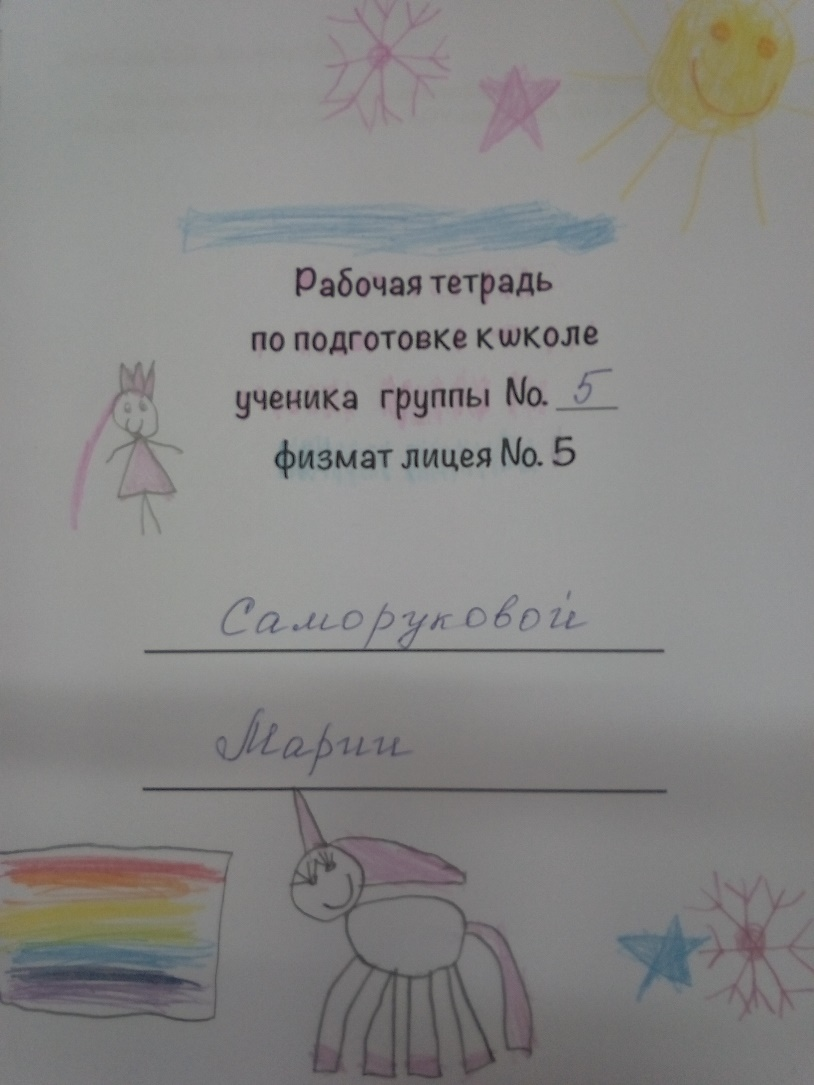 Рабочая тетрадь
по подготовке к школе
ученика группы No. 5
физмат лицея No. 5
Саморуковой
Марии